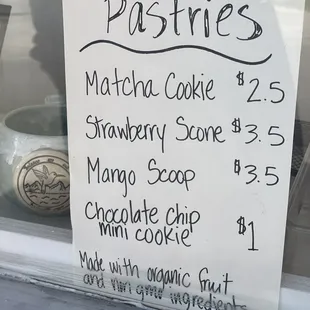 Pastries
Matcha Cookie $2.5
Strawberry Scone $3.5
Mango Scoop $3.5
Chocolate chip
mini cookie $1
Made with organic fruit
and non gmo ingredients